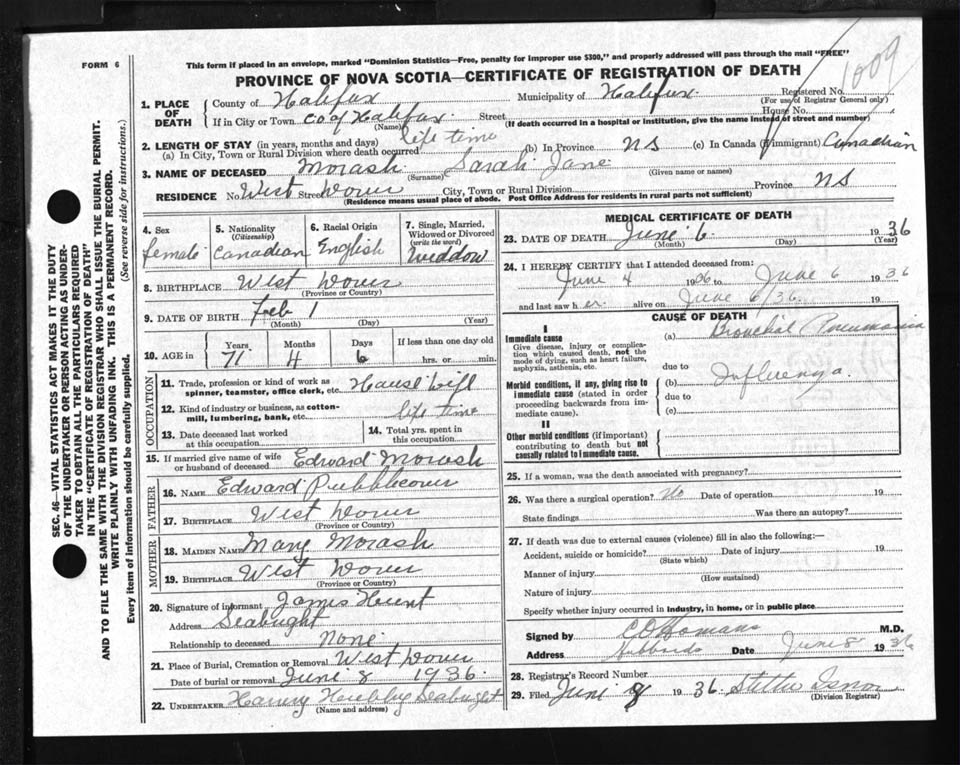 FORM 6
This form if placed in an envelope, marked "Dominion Statistics—Free, penalty for improper use $300," and properly addressed will pass through the mail "FREE"
PROVINCE OF NOVA SCOTIA—CERTIFICATE OF REGISTRATION OF DEATH
1009
1. PLACE OF DEATH
County of Halifax Municipality of Halifax Registered No.
(For use of Registrar General only)
If in City or Town Co of Halifax Street House No.
(Name) (If death occurred in a hospital or institution, give the name instead of street and number)
2. LENGTH OF STAY (in years, months and days)
(a) In City, Town or Rural Division where death occurred life time (b) In Province NS (c) In Canada (if immigrant) Canadian
3. NAME OF DECEASED Morash Sarah Jane
(Surname) (Given name or names)
RESIDENCE No. West Street Dover City, Town or Rural Division Province NS
(Residence means usual place of abode. Post Office Address for residents in rural parts not sufficient)
4. Sex female
5. Nationality (Citizenship) Canadian
6. Racial Origin English
7. Single, Married, Widowed or Divorced (write the word) Widdow
8. BIRTHPLACE West Dover
(Province or Country)
9. DATE OF BIRTH Feb 1
(Month) (Day) (Year)
10. AGE in Years 71 Months 4 Days 6 If less than one day old hrs. or min.
OCCUPATION
11. Trade, profession or kind of work as spinner, teamster, office clerk, etc. House Wife
12. Kind of industry or business, as cotton-mill, lumbering, bank, etc. life time
13. Date deceased last worked at this occupation
14. Total yrs. spent in this occupation
15. If married give name of wife or husband of deceased Edward Morash
FATHER
16. NAME Edward Publicover
17. BIRTHPLACE West Dover
(Province or Country)
MOTHER
18. MAIDEN NAME Mary Morash
19. BIRTHPLACE West Dover
(Province or Country)
20. Signature of informant James Hunt
Address Seabright
Relationship to deceased None
21. Place of Burial, Cremation or Removal West Dover
Date of burial or removal June 8 1936
22. UNDERTAKER Harvey Hubley Seabright
(Name and address)
MEDICAL CERTIFICATE OF DEATH
23. DATE OF DEATH June 6 1936
(Month) (Day) (Year)
24. I HEREBY CERTIFY that I attended deceased from:
June 4 1936 to June 6 1936
and last saw her alive on June 6/36. 19
CAUSE OF DEATH
I
Immediate cause
Give disease, injury or complication which caused death, not the mode of dying, such as heart failure, asphyxia, asthenia, etc.
(a) Bronchial Pneumonia
due to
Morbid conditions, if any, giving rise to immediate cause (stated in order proceeding backwards from immediate cause).
(b) Influenza.
due to
(c)
II
Other morbid conditions (if important) contributing to death but not causally related to immediate cause.
25. If a woman, was the death associated with pregnancy?
26. Was there a surgical operation? No Date of operation 19
State findings Was there an autopsy?
27. If death was due to external causes (violence) fill in also the following:—
Accident, suicide or homicide? Date of injury 19
(State which)
Manner of injury
(How sustained)
Nature of injury
Specify whether injury occurred in industry, in home, or in public place
Signed by C O Homans M.D.
Address Hubbards Date June 8 1936
28. Registrar's Record Number
29. Filed June 8 1936 Isnor
(Division Registrar)
SEC. 46—VITAL STATISTICS ACT MAKES IT THE DUTY
OF THE UNDERTAKER OR PERSON ACTING AS UNDER-
TAKER TO OBTAIN ALL THE PARTICULARS REQUIRED
IN THE "CERTIFICATE OF REGISTRATION OF DEATH"
AND TO FILE THE SAME WITH THE DIVISION REGISTRAR WHO SHALL ISSUE THE BURIAL PERMIT.
WRITE PLAINLY WITH UNFADING INK. THIS IS A PERMANENT RECORD.
Every item of information should be carefully supplied. (See reverse side for instructions.)